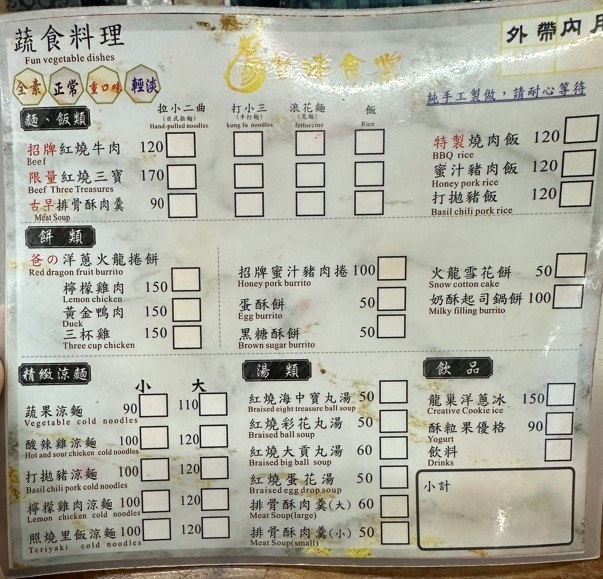 蔬食料理
Fun vegetable dishes
外帶內用
全素 正常 重口味 輕淡
純手工製做,請耐心等待
麵、飯類
拉小二曲 打小三 浪花麵 飯
(日式拉麵) (手打麵) (寬麵)
Hand-pulled noodles kung fu noodles fettuccine Rice
招牌紅燒牛肉 120
Beef
限量紅燒三寶 170
Beef Three Treasures
古早排骨酥肉羹 90
Meat Soup
特製燒肉飯 120
BBQ rice
蜜汁豬肉飯 120
Honey pork rice
打拋豬飯 120
Basil chili pork rice
餅類
爸の洋蔥火龍捲餅
Red dragon fruit burrito
檸檬雞肉 150
Lemon chicken
黃金鴨肉 150
Duck
三杯雞 150
Three cup chicken
招牌蜜汁豬肉捲 100
Honey pork burrito
蛋酥餅 50
Egg burrito
黑糖酥餅 50
Brown sugar burrito
火龍雪花餅 50
Snow cotton cake
奶酥起司鍋餅 100
Milky filling burrito
精緻涼麵
小 大
蔬果涼麵 90 110
Vegetable cold noodles
酸辣雞涼麵 100 120
Hot and sour chicken cold noodles
打拋豬涼麵 100 120
Basil chili pork cold noodles
檸檬雞肉涼麵 100 120
Lemon chicken cold noodles
照燒里飯涼麵 100 120
Teriyaki cold noodles
湯類
紅燒海中寶丸湯 50
Braised eight treasure ball soup
紅燒彩花丸湯 50
Braised ball soup
紅燒大貢丸湯 60
Braised big ball soup
紅燒蛋花湯 50
Braised egg drop soup
排骨酥肉羹(大) 60
Meat Soup(large)
排骨酥肉羹(小) 50
Meat Soup(small)
飲品
龍巢洋蔥冰 150
Creative Cookie ice
酥粒果優格 90
Yogurt
飲料
Drinks
小計